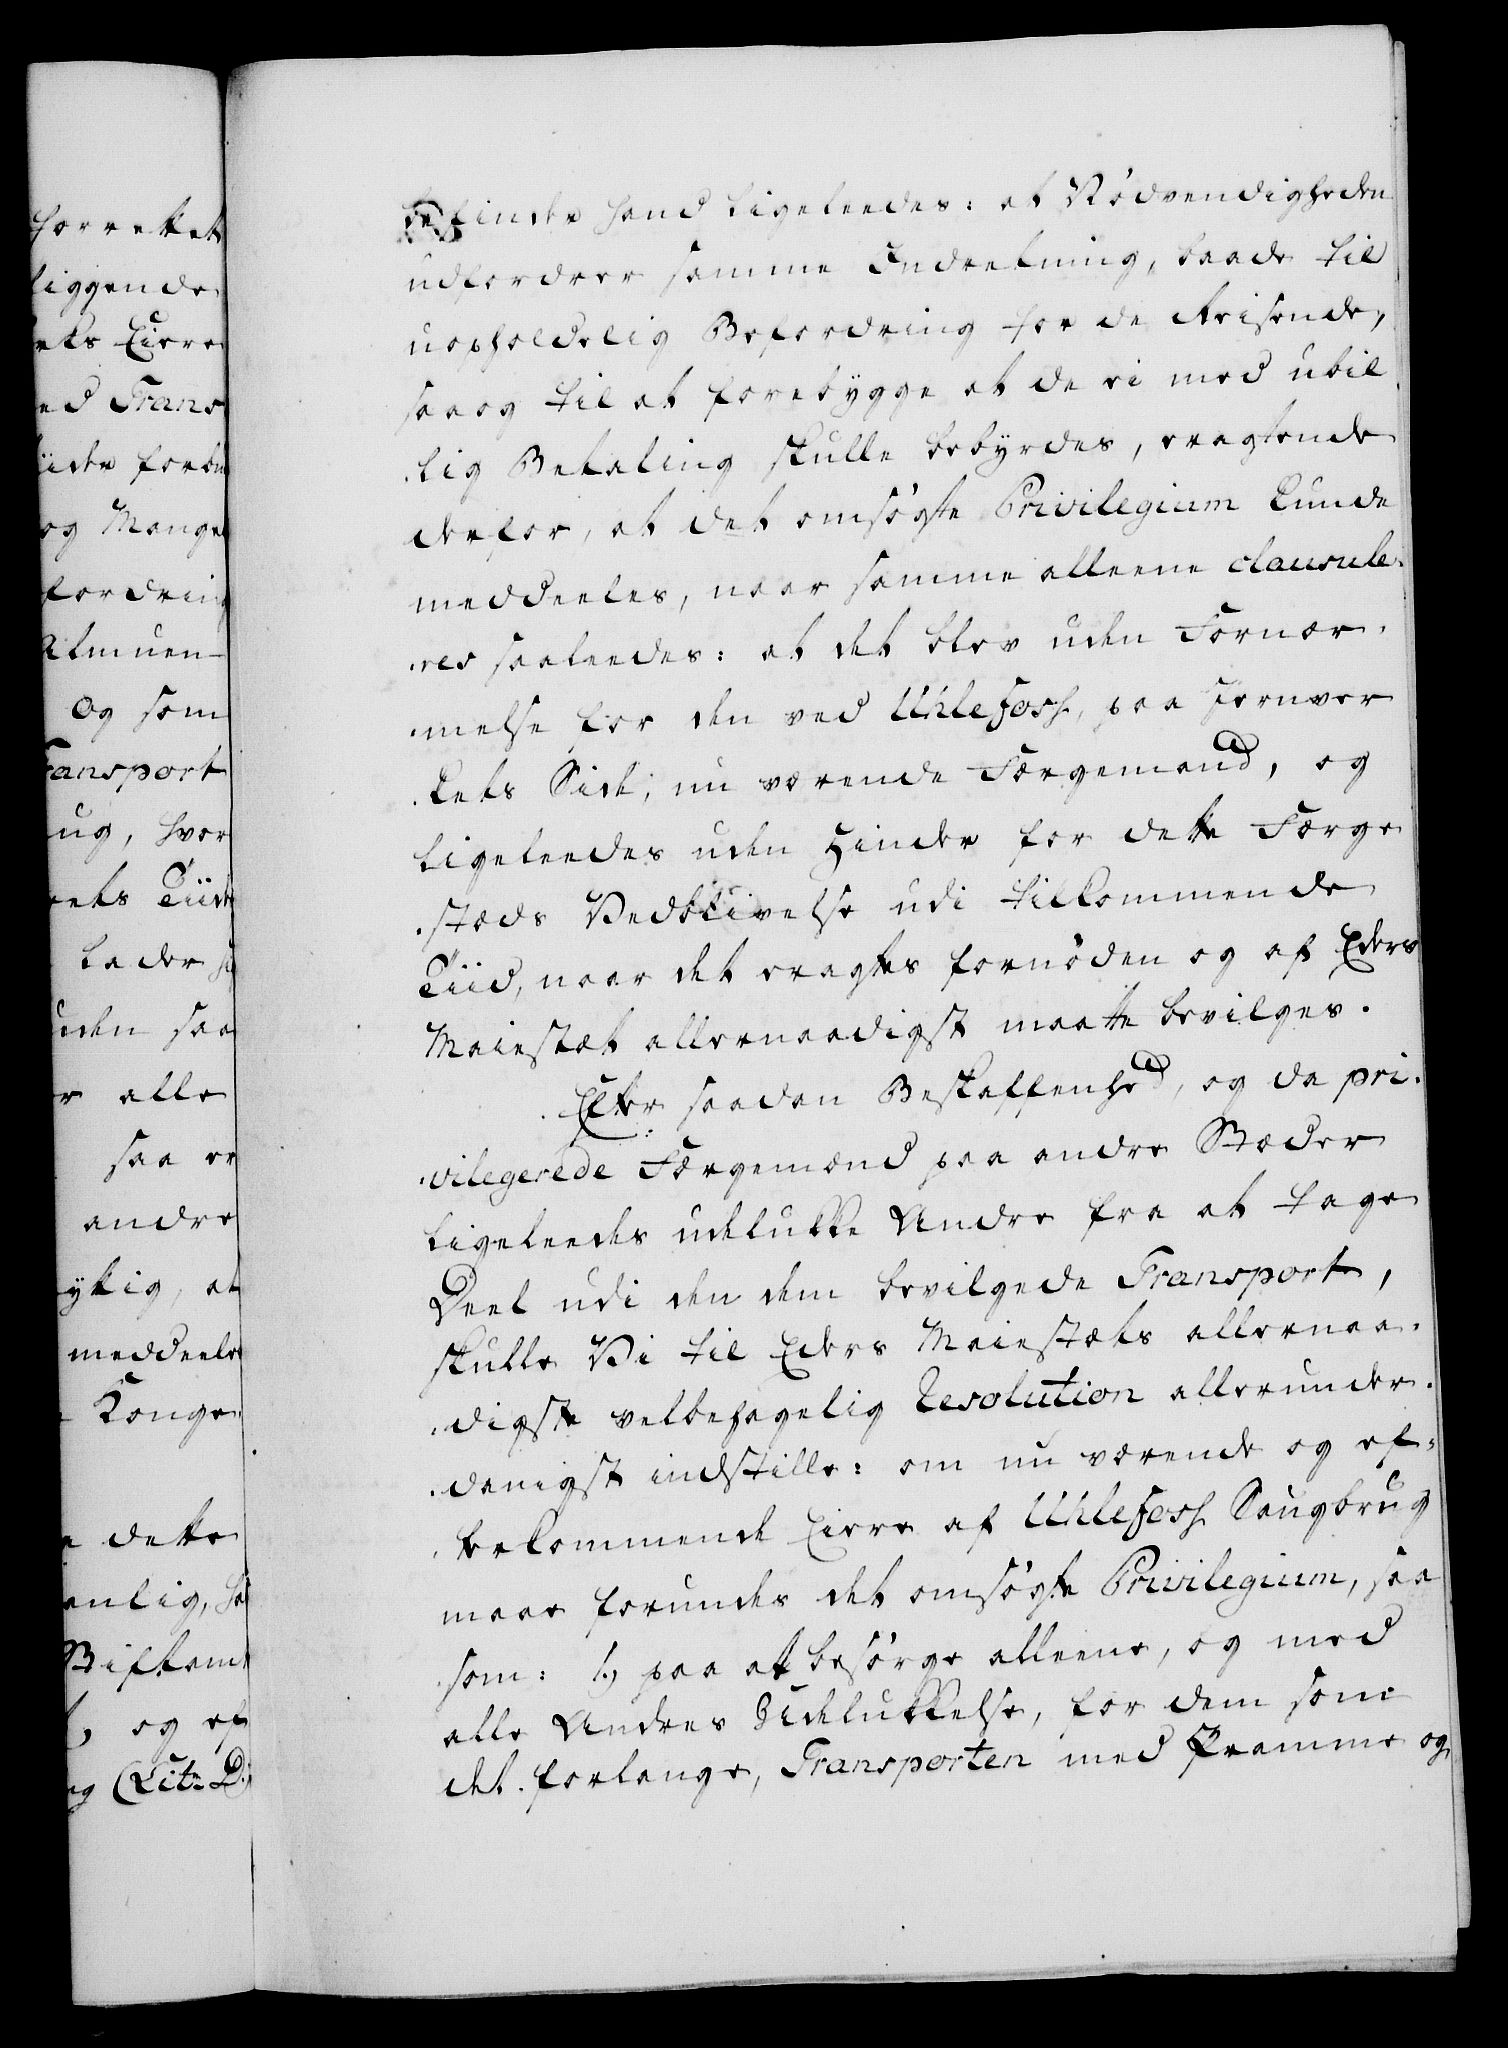 forrettet
liggende
ets Eiere
ed Trans
iider forbu
og Mangel
fordring
Almuen
Og som
ransport
ug, hvor
ets Tiid
lader
uden saa
r alle
saa er
andre
yttig, at
meddeele
Konge
dette
anlig, så
Stiftam
og ef
ng (Lit: D.)
befinder hand ligeleedes: at Nödvendigheden
udfordrer samme Indretning, baade til
uopholdelig Befordring for de Reisende,
saa og til at forebygge at de ei med ubil
lig Betaling skulle bebyrdes, eragtende
derfor, at det omsögte Privilegium kunde
meddeeles, naar samme alleene clausule-
res saaleedes: at det blev uden Fornær-
melse for den ved Uhlefoss, paa Jernver
kets Side, nu værende Færgemand, og
ligeleedes uden Hinder for dette Færge
stæds Vedblivelse udi tilkommende
Tiid, naar det eragtes fornöden og af Eders
Maiestæt allernaadigst maatte bevilges.
Efter saadan Beskaffenhed, og da pri-
vilegerede Færgemænd paa andre Stæder
ligeleedes udelukke Andre fra at tage
Deel udi den dem bevilgede Transport,
skulle Vi til Eders Maiestæts allernaa-
digste velbehagelig Resolution allerunder-
danigst indstille: om nu værende og ef-
terkommende Eiere af Uhlefoss Saugbrug
maae forundes det omsögte Privilegium, saa
som: 1.) paa at besörge alleene, og med
alle Andres Udelukkelse, for dem som
det forlange, Transporten med Pramme og